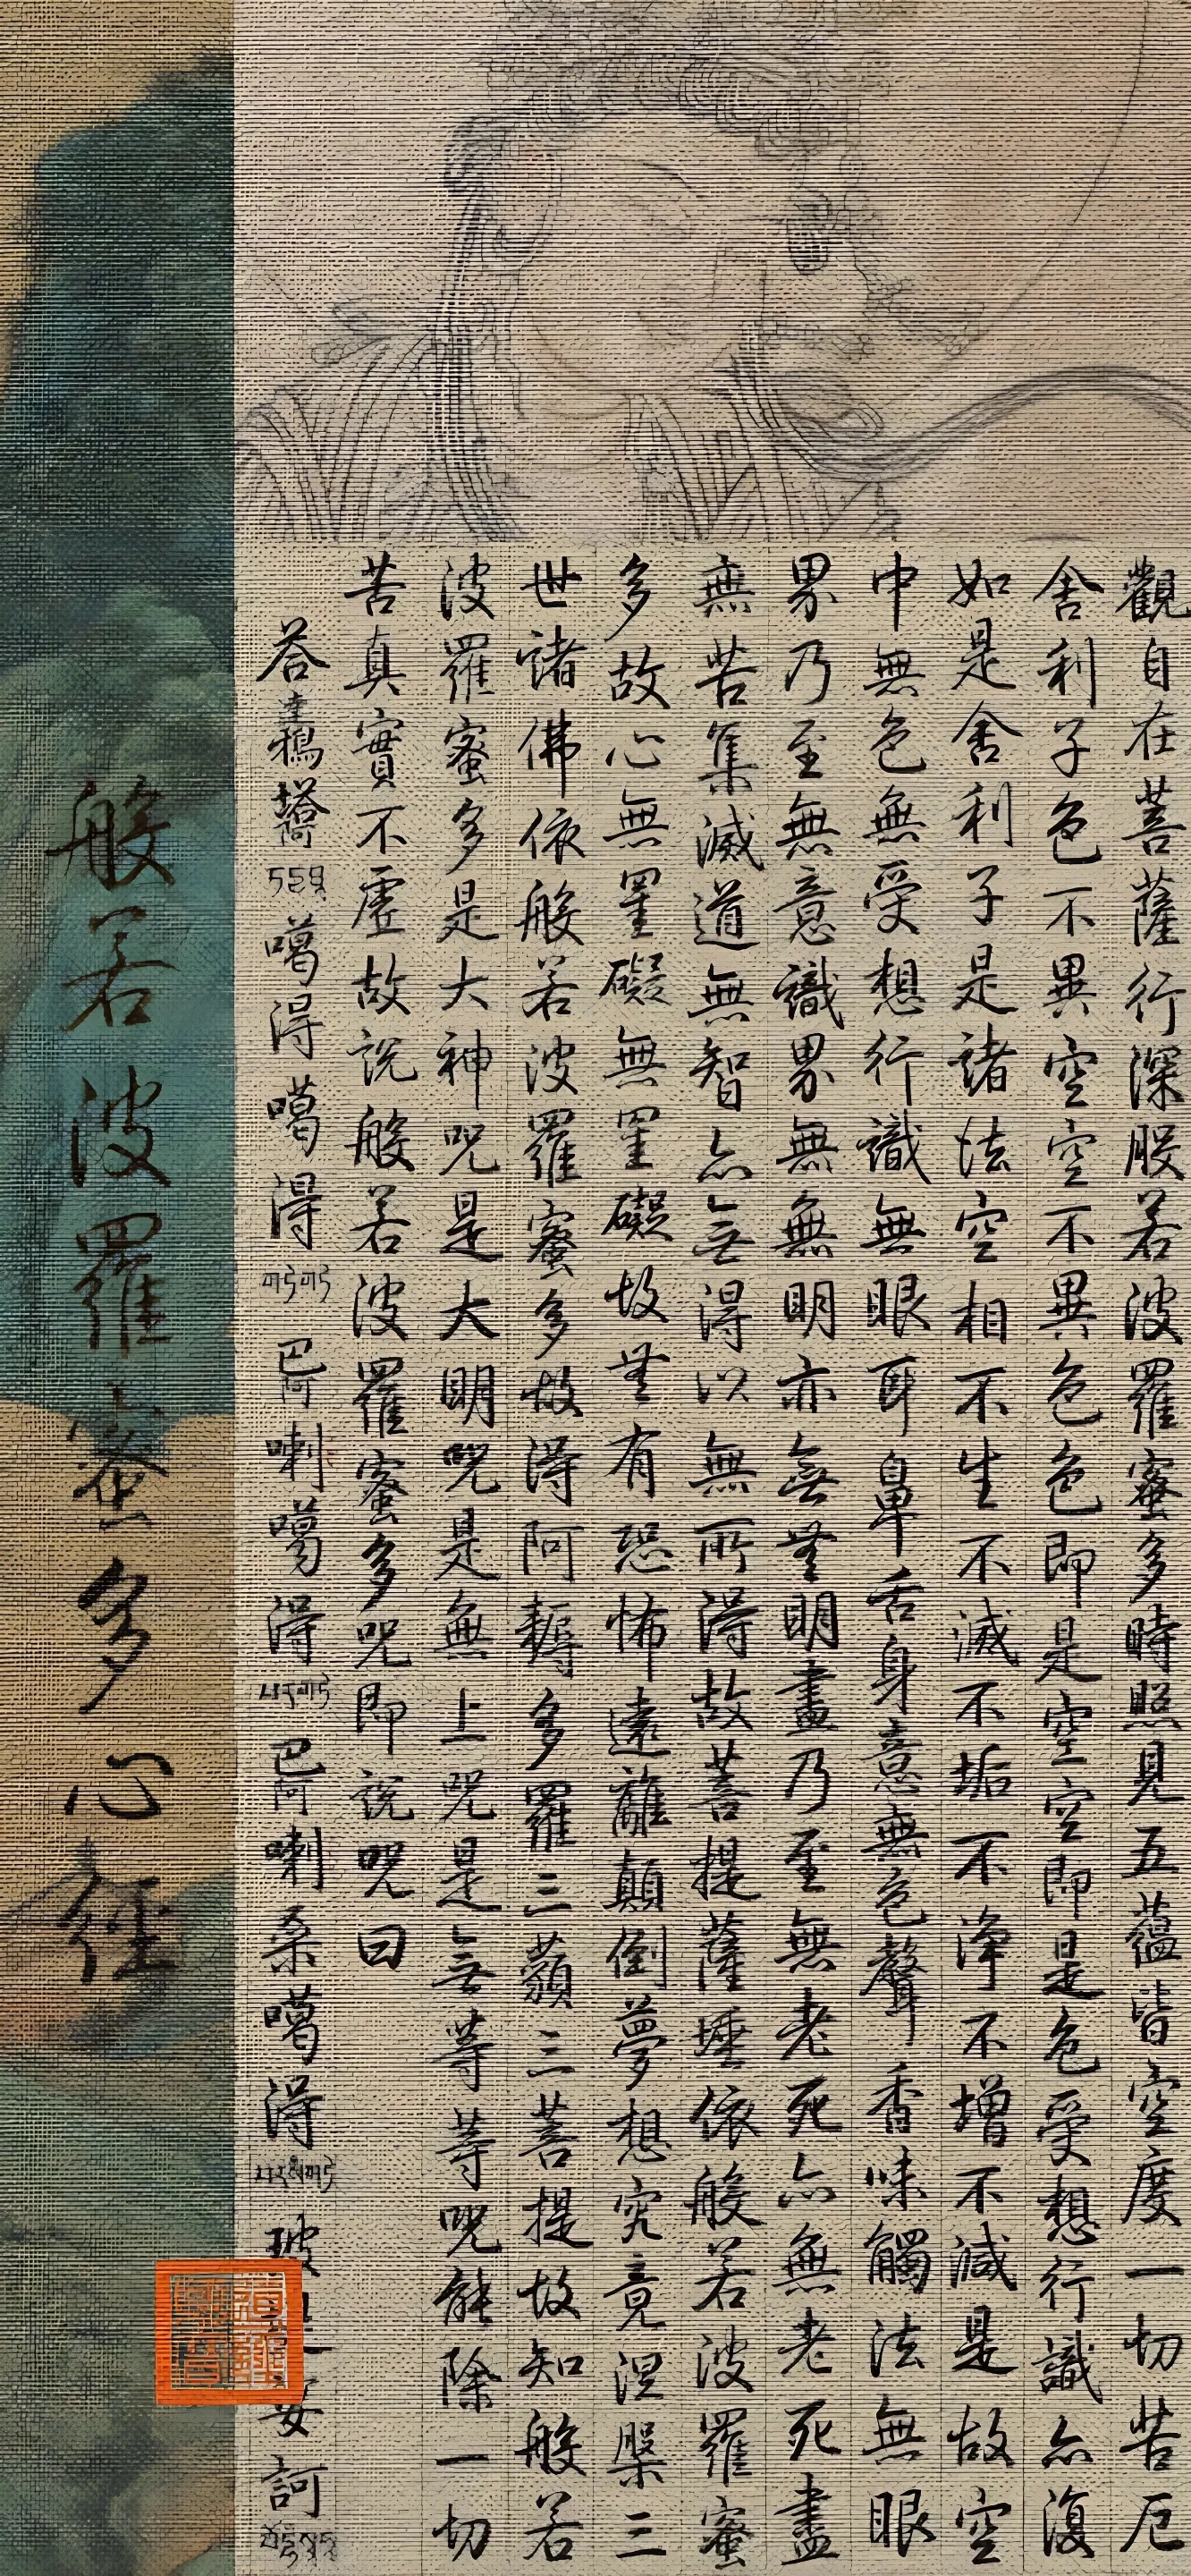 觀自在菩薩行深般若波羅蜜多時照見五蘊皆空度一切苦厄
舍利子色不異空空不異色色即是空空即是色受想行識亦復
如是舍利子是諸法空相不生不滅不垢不淨不增不減是故空
中無色無受想行識無眼耳鼻舌身意無色聲香味觸法無眼
界乃至無意識界無無明亦無無明盡乃至無老死亦無老死盡
無苦集滅道無智亦無得以無所得故菩提薩埵依般若波羅蜜
多故心無罣礙無罣礙故無有恐怖遠離顛倒夢想究竟涅槃三
世諸佛依般若波羅蜜多故得阿耨多羅三藐三菩提故知般若
波羅蜜多是大神咒是大明咒是無上咒是無等等咒能除一切
苦真實不虛故說般若波羅蜜多咒即說咒曰
達鴉噶得噶得巴阿喇噶得巴阿喇桑噶得訶
般若波羅蜜多心經